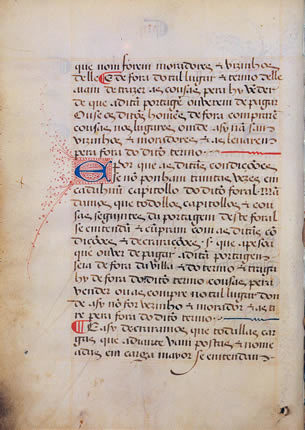 que nom forem moradores e vizinhos
delle E de fora do tal lugar e termo delle
ajam de trazer as cousas pera hy vẽder
de que a dita portagẽ ouverem de pagar
Ou se os ditos homẽs de fora comprarẽ
cousas nos lugares omde asy nã sam
vizinhos e moradores e as levarem
pera fora do dito termo
E por que as ditas condições
se nõ ponham tamtas vezes em
cada hũ capitollo do dito foral mã
damos que todollos capitollos e cou
sas seguintes da portagem deste foral
se emtendã e cũpram com as ditas cõ
dições e decrarações s que a pesoa
que ouver de pagar a dita portagem
seia de fora da villa e do termo e traga
hy de fora do dito termo cousas pera
vender ou as compre no tal lugar don
de asy nõ for vezinho e morador e as ti
re pera fora do dito termo
E asy decraramos que todallas car
gas que adiante vam postas e nome
adas em carga mayor se emtendam